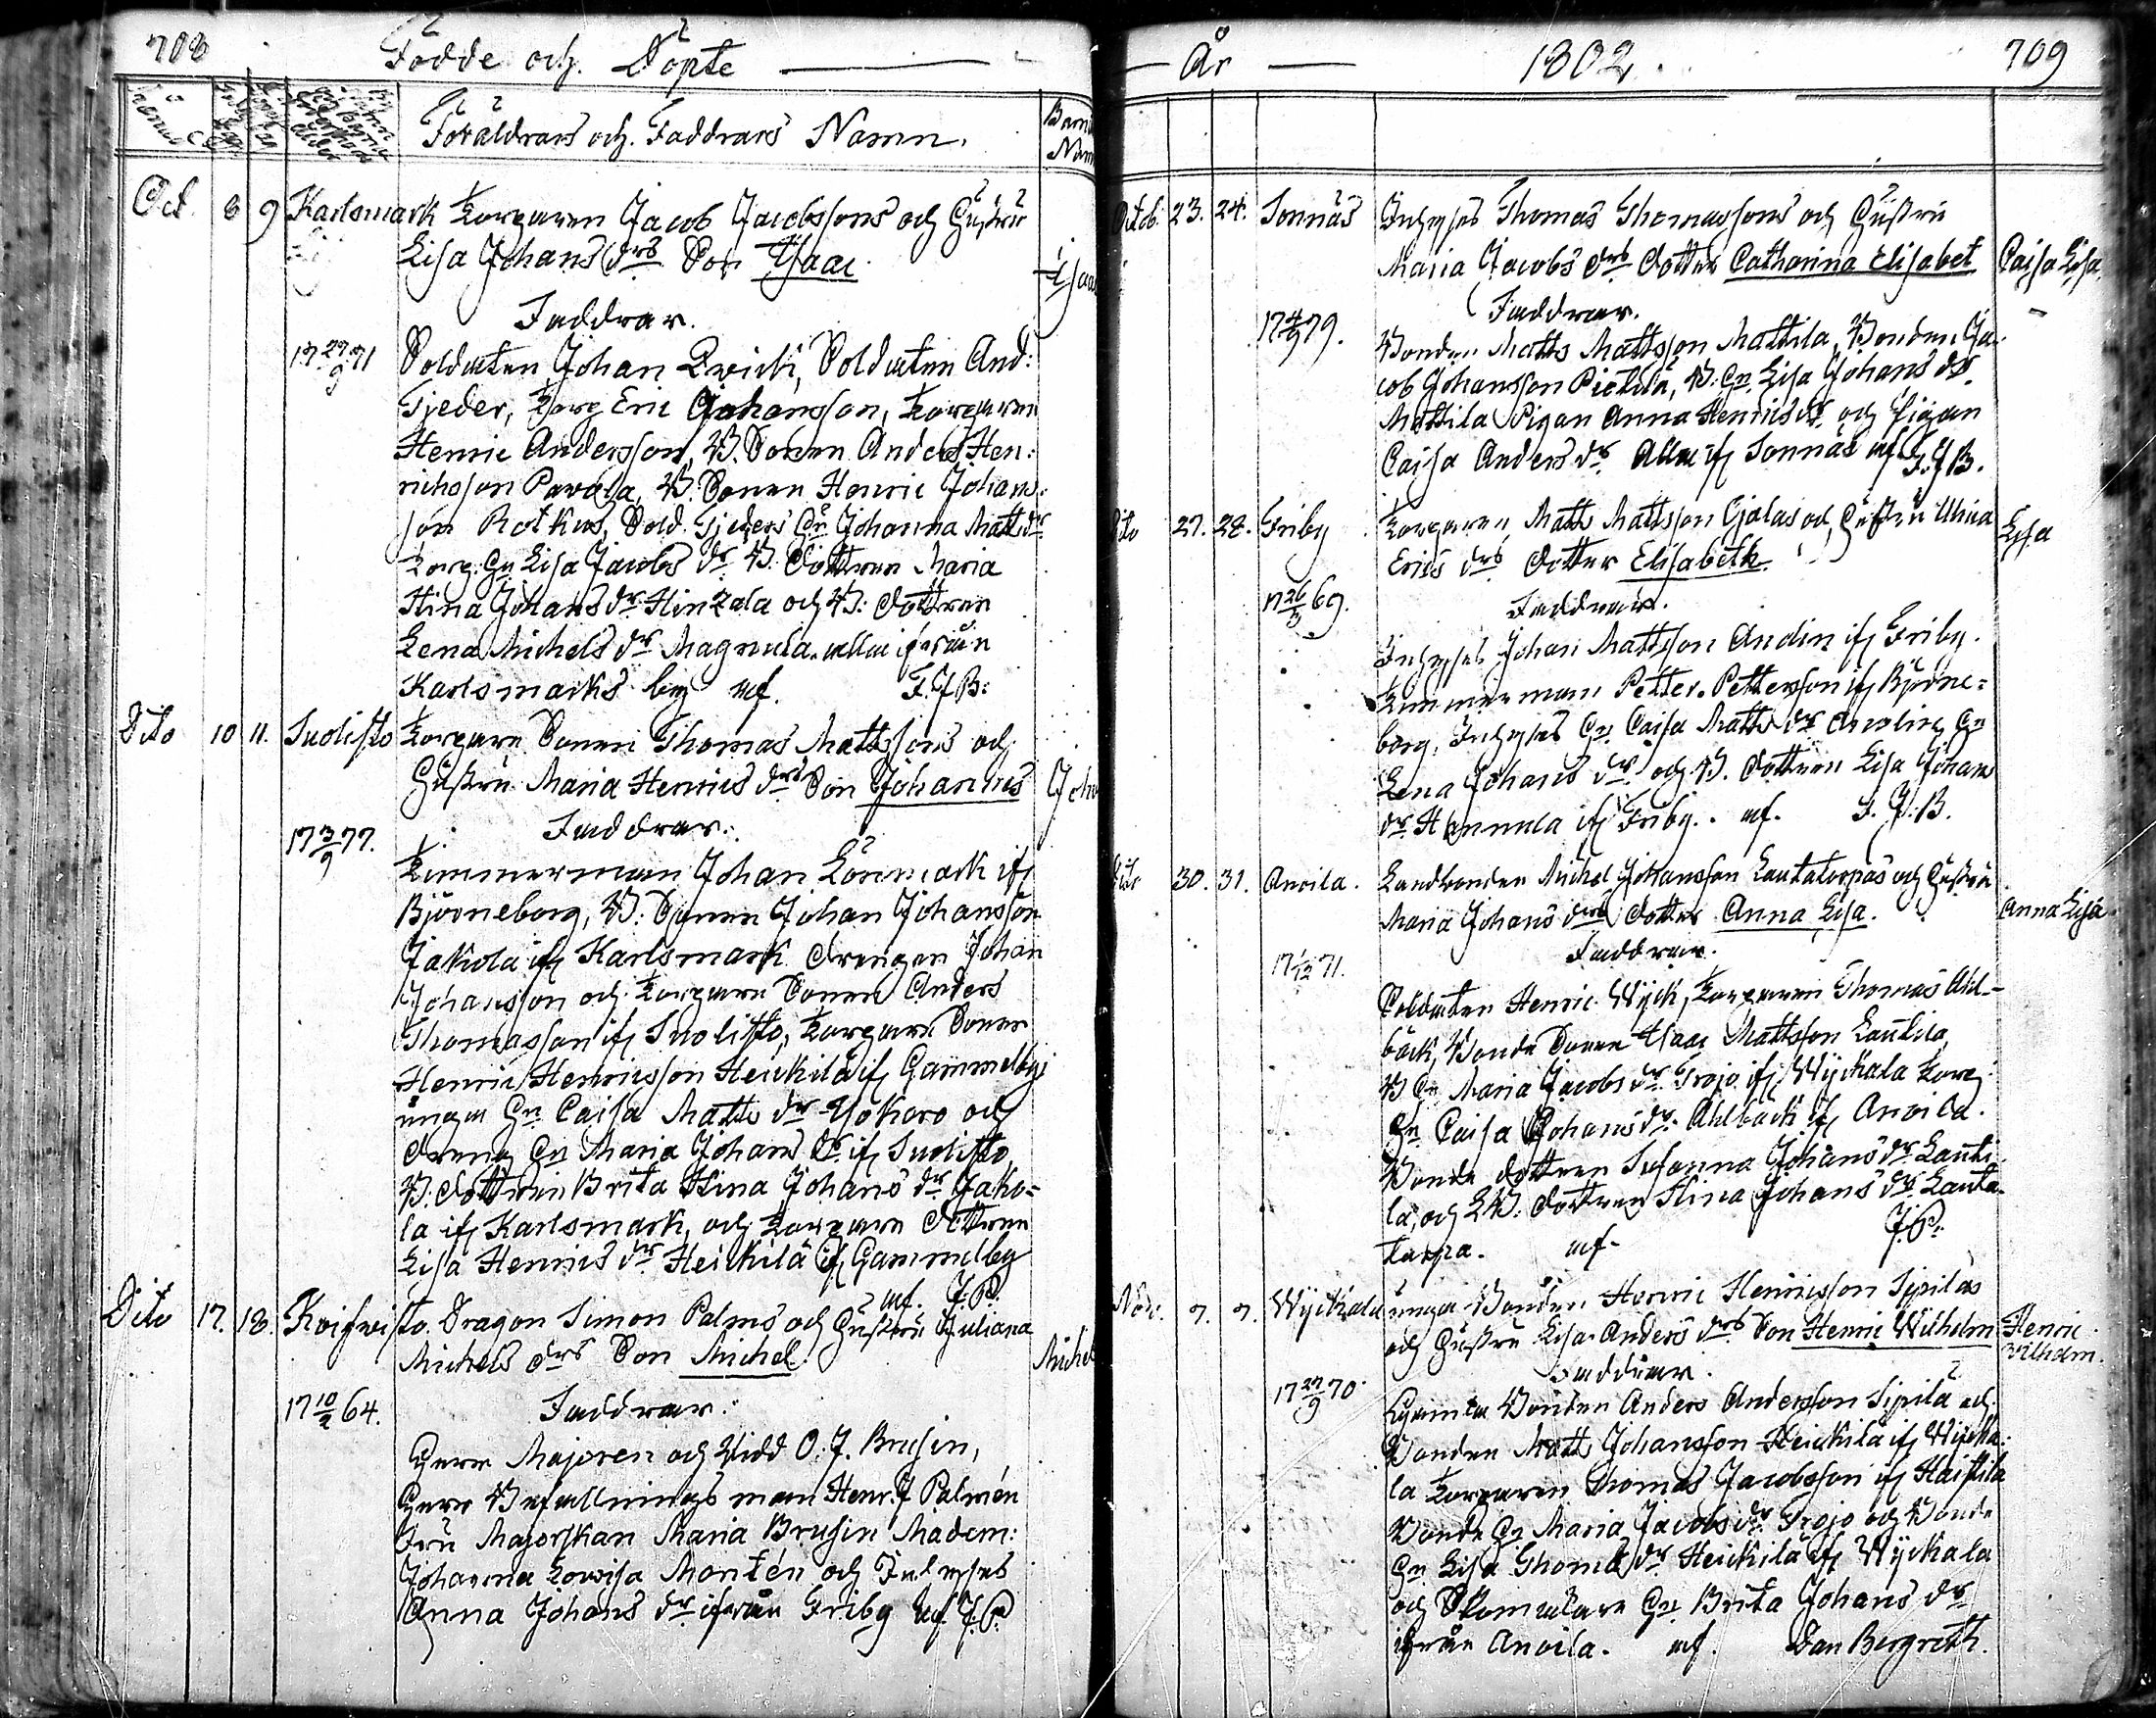 708
Födde och Döpte
Föräldrars och Faddrars Namn.
Barn
Nam
Oct. 8 9 Karlsmark Torparen Jacob Jacobssons och Hustrus
Lisa Johans drs Son Isaac
Isaac
Faddrar.
17 27/9 71 Soldaten Johan Qvick, Soldaten And:
Gjeder, Torp Eric Johansson, Torparen
Henric Andersson, B. Sonen Anders Hen:
richsson Pavola, B: Sonen Henric Johans:
son Rotkus, Sold. Gjeders Hu Johanna Matts dr
Torp: Hu Lisa Jacobs dr B: dottren Maria
Stina Johans dr Hinzala och B: dottren
Lena Michels dr Magnula alla ifrån
Karlsmarks by af. F.J.B:
Dito 10 11. Suolisto Torpare Sonen Thomas Mattssons och
Hustru Maria Henrics drs Son Johannes
Joha
17 3/9 77. Faddrar:
Timmerman Johan Lönmark if
Björneborg, B: Sonen Johan Johansson
Jakola if Karlsmark Drengen Johan
Johansson och Torpare Sonen Anders
Thomasson if Suolisto, Torpare Sonen
Henric Henricsson Heickilä if Gammelby
unga Hu Caisa Matts dr Yokoro och
dreng Hu Maria Johans dr if Suolisto,
B: dottren Brita Stina Johans dr Jako=
la if Karlsmark, och Torpare dottren
Lisa Henrics dr Heickilä if Gammelby
af. J.P.
Dito 17. 18. Koifwisto. Dragon Simon Palms och Hustru Juliana
Michels drs Son Michel
Michel
17 10/2 64. Faddrar:
Herr Majoren och Ridd O. J. Brusin,
Herr Befallningsman Henr. J Palmén
Fru Majorskan Maria Brusin Madem:
Johanna Lovisa Montén och Inhyses
Anna Johans dr ifrån Friby af J.P.
År 1802. 709
Octob. 23. 24. Sonnäs Inhyses Thomas Thomassons och Hustru
Maria Jacobs drs dotter Catharina Elisabet
Caisa Lisa
Faddrar.
17 4/9 79. Bonden Matts Mattsson Mattila, Bonden Ja:
cob Johansson Pietilä, B: Hu Lisa Johans dr
Mattila Pigan Anna Henrics dr och Pigan
Caisa Anders dr Alla if Sonnäs af F.J.B.
Dito 27. 28. Friby Torparen Matts Mattsson Ojalas och Hustru Ulrica
Erics drs dotter Elisabeth
Lisa
17 26/3 69. Faddrar.
Inhyses Johan Mattsson Andin if Friby.
Timmerman Petter Pettersson if Björne=
borg, Inhyses Hu Caisa Matts dr Andin, Hu
Lena Johans dr och B. dottren Lisa Johans
dr Hannula if Friby. af. F.J.B.
Dito 30. 31. Anoila. Landbonden Michel Johansson Lautatorpas och Hustru
Maria Johans drs dotter Anna Lisa.
Anna Lisa
17 1/12 71. Faddrar.
Soldaten Henric Wyck, Torparen Thomas Ahl-
bäck, Bonde Sonen Isaac Mattsson Lautila,
B Hu Maria Jacobs dr Trojo if Wyckala Torp
Hu Caisa Johans dr Ahlbäck if Anoila.
Bonde dottren Susanna Johans dr Lauti
la, och LB: dottren Stina Johans dr Lauta
torpa. af. J.P.
Nov. 7. 7. Wyckala unga Bonden Henric Henricsson Sipiläs
och Hustru Lisa Anders drs Son Henric Wilhelm
Henric
Wilhelm.
Faddrar.
17 27/9 70. Gamla Bonden Anders Andersson Sipilä och
Bonden Matts Johansson Heickilä if Wycka:
la Torparen Thomas Jacobsson if Haistila
Bonde Hu Maria Jacobs dr Trojo och Bonde
Hu Lisa Thomæ dr Heickilä if Wyckala
och Skomakare Hu Brita Johans dr
ifrån Anoila. af. Dan Bergroth.